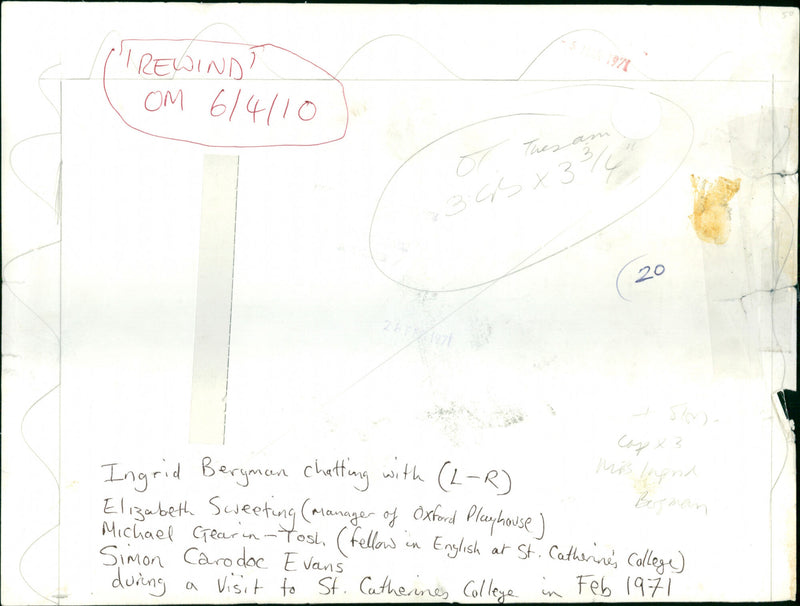 'REWIND'
OM 6/4/10
1971
OT Tues am
3 cols x 3 3/4"
(20
1971
Cap x 3
Miss Ingrid
Bergman
Ingrid Bergman chatting with (L-R)
Elizabeth Sweeting (manager of Oxford Playhouse)
Michael Gearin-Tosh (fellow in English at St. Catherine's College)
Simon Carodoc Evans
during a visit to St. Catherines College in Feb 1971